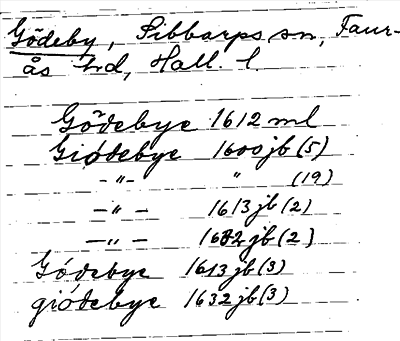 Gödeby, Sibbarps sn, Faur-
ås hd, Hall. l.
Gödebye 1612 ml
Giödebye 1600 jb (5)
-"- " (19)
-"- 1613 jb (2)
-"- 1632 jb (2)
Gódebye 1613 jb (3)
giódebye 1632 jb (3)